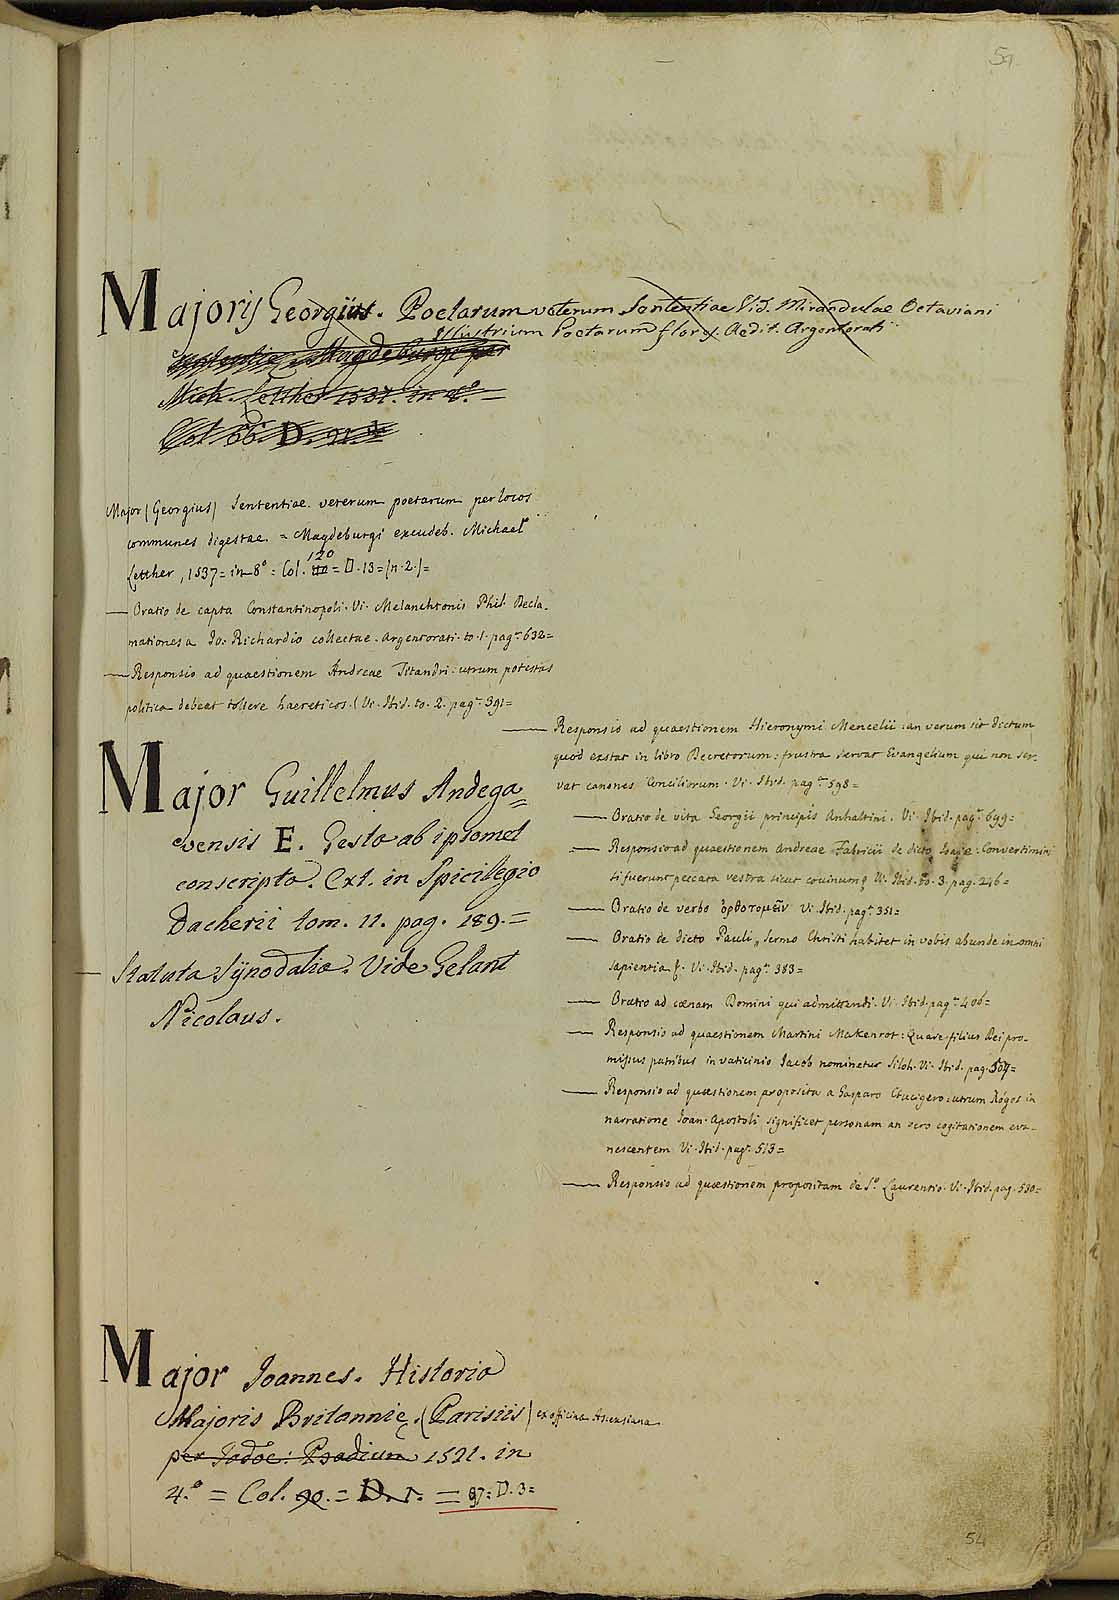 54
Majoris Georgius. Poetarum veterum Sententiae Vid. Mirandulae Octaviani
Illustrium Poetarum flores. Aedit. Argentorati
Magdeburge per
Mich. Lotther 1537. in 8.° =
Col. 66. D. 91.
Major (Georgius) Sententiae veterum poetarum per locos
communes digestae. = Magdeburgi excudeb. Michael
Lotther, 1537 = in 8° = Col. 120 = D. 13 = (n. 2.) =
— Oratio de capta Constantinopoli. Vi. Melanchtonis Phil. Decla-
mationes a Io: Richardio collectae. Argentorati. to. 1. pag. 632 =
— Responsio ad quaestionem Andreae Titandri: utrum potestas
politica debeat tollere haereticos. (Vi. Ibid. to. 2. pag. 391 =
— Responsio ad quaestionem Hieronymi Mencelii: an verum sit dictum
quod exstat in libro Decretorum: frustra servat Evangelium qui non ser-
vat canones Conciliorum. Vi. Ibid. pag. 598 =
— Oratio de vita Georgii principis Anhaltini. Vi. Ibid. pag. 699 =
— Responsio ad quaestionem Andreae Fabricii de dicto Isaje: Convertimini
si fuerunt peccata vestra sicut Vi. Ibid. to. 3. pag. 246 =
— Oratio de verbo ὀρθοτομεῖν Vi. Ibid. pag. 351 =
— Oratio de dicto Pauli, Sermo Christi habitet in vobis abunde in omni
sapientia f. Vi. Ibid. pag. 383 =
— Oratio ad caenam Domini qui admittendi. Vi. Ibid. pag. 406 =
— Responsio ad quaestionem Martini Makenrot: Quare filius Dei pro-
missus patribus in vaticinio Jacob nominetur Siloh. Vi. Ibid. pag. 507 =
— Responsio ad quaestionem proposita a Gasparo Crucigero: utrum λόγος in
narratione Joan. Apostoli significet personam an vero cogitationem eva-
nescentem Vi. Ibid. pag. 513 =
— Responsio ad quaestionem propositam de S.° Laurentio. Vi. Ibid. pag. 530 =
Major Guillelmus Andega=
vensis E. Gesta ab ipsomet
conscripta. Ext. in Spicilegio
Dacherii tom. 11. pag. 189. =
— Statuta Synodalia. Vide Gelant
Nicolaus.
Major Joannes. Historia
Majoris Britannię. (Parisiis) ex officina Ascensiana
per Jodoc: Badium 1521. in
4.° = Col. 90. = D. 1. = 97 = D. 3 =
54